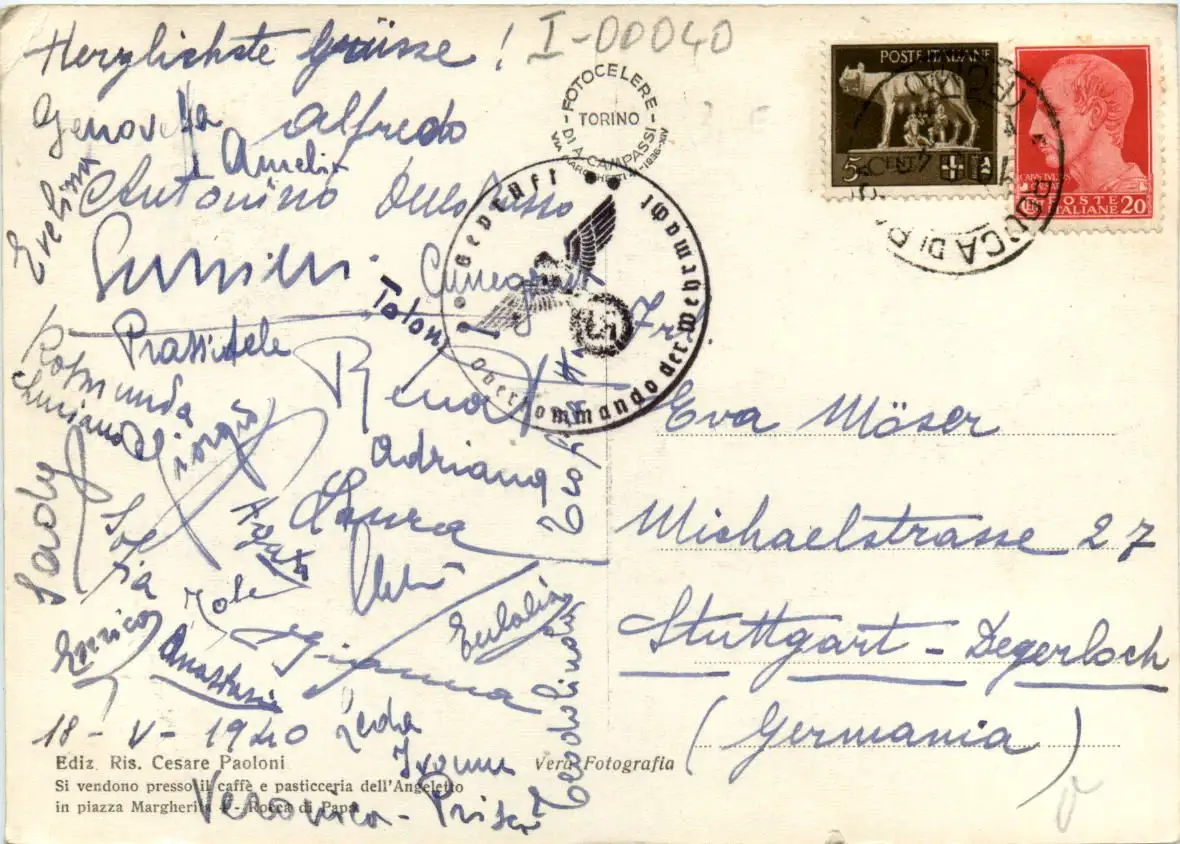 Herzlichste Grüsse!
I-00040
FOTOCELERE
TORINO
DI A. CAMPASSI
POSTE ITALIANE
5 CENT.
POSTE
ITALIANE 20
ROCCA DI PAPA
Genoveffa Alfredo
Amelia
Evelina
Antonino
Geöffnet
Oberkommando der Wehrmacht
Cunegonda
Prassitele
Renato
Rosmunda
Luciano
Giorgio
Adriana
Laura
Sady
Sofia
Agata
Jole
Enrico
Anastasia
Gianna
Eulalia
Teodolinda
Eva Möser
Michaelstrasse 27
Stuttgart - Degerloch
(Germania)
18-V-1940
Leda
Ivonne
Veronica - 
Ediz. Ris. Cesare Paoloni
Vera Fotografia
Si vendono presso il caffè e pasticceria dell'Angeletto
in piazza Margherita 4 - Rocca di Papa